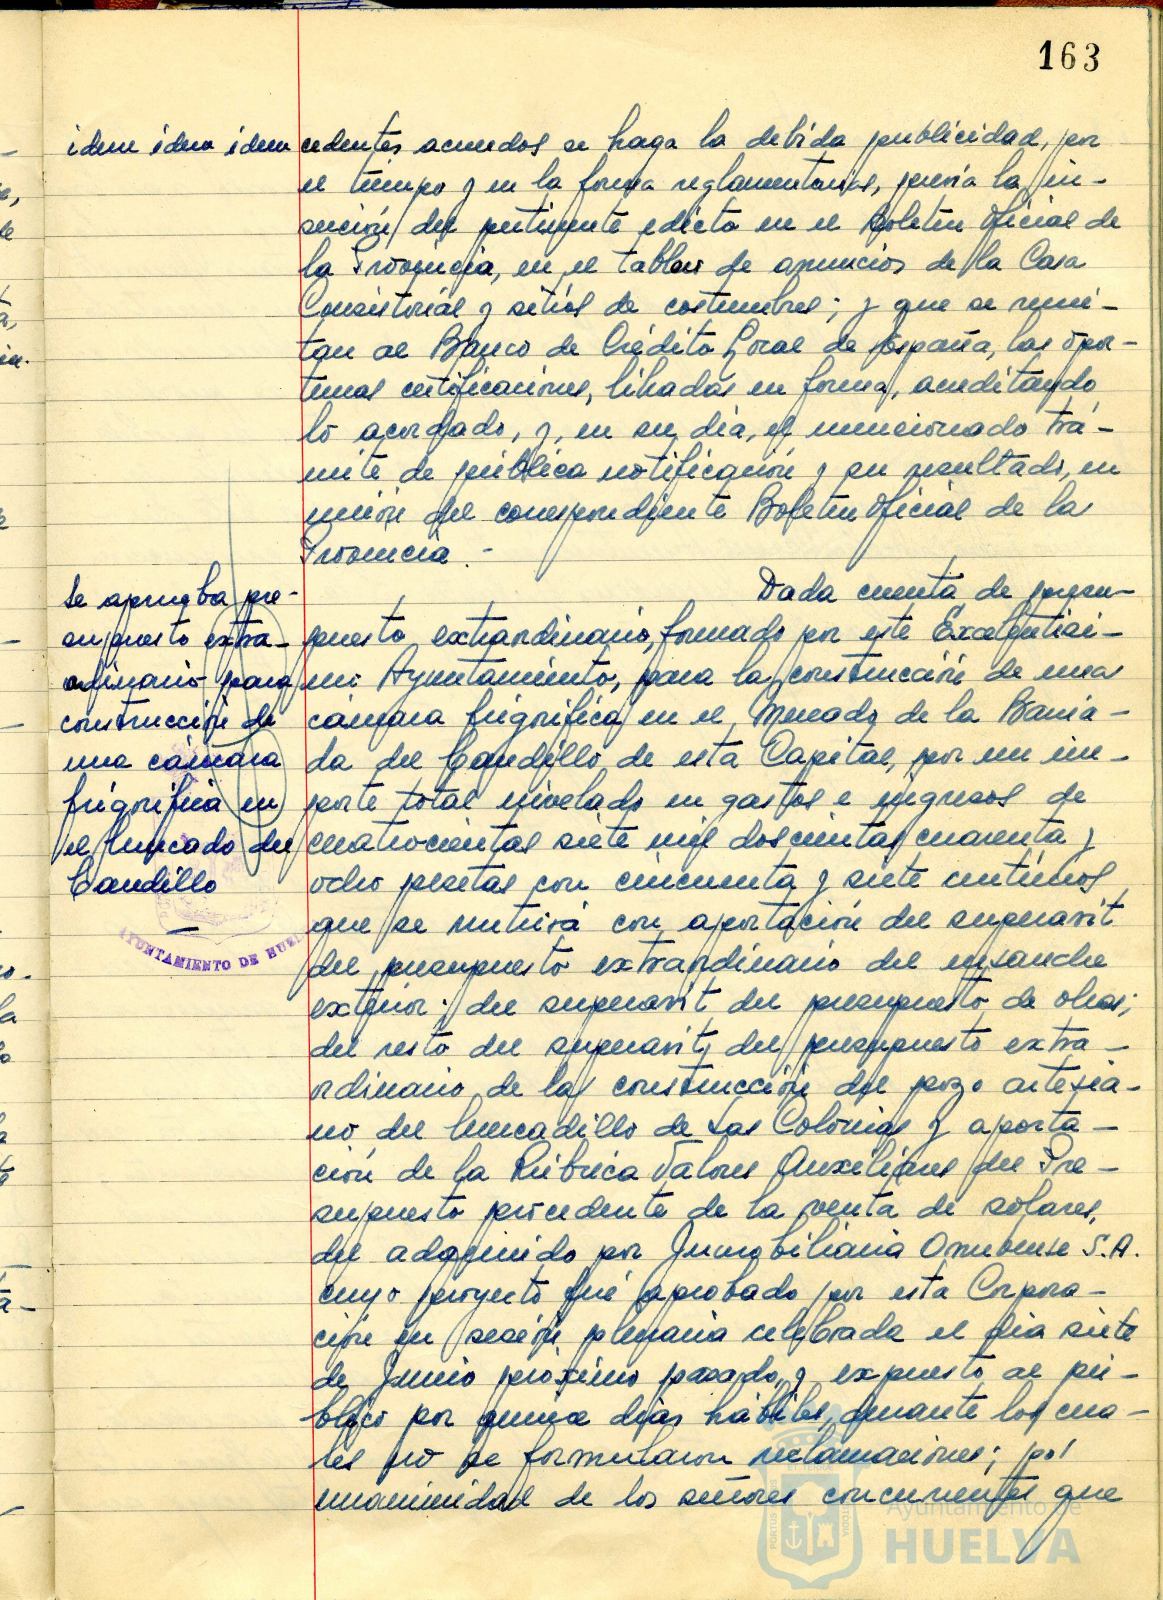 163
idem idem idem
cedentes acuerdos se haga la debida publicidad, por
el tiempo y en la forma reglamentarias, previa la in-
serción del pertinente edicto en el Boletín Oficial de
la Provincia, en el tablero de anuncios de la Casa
Consistorial y sitios de costumbres; y que se remi-
tan al Banco de Crédito Local de España, las opor-
tunas certificaciones, libradas en forma, acreditando
lo acordado, y, en su día, el mencionado trá-
mite de pública notificación y su resultado, en
unión del correspondiente Boletín Oficial de la
Provincia.-
Se aprueba pre-
supuesto extra-
ordinario para
construcción de
una cámara
frigorífica en
el Mercado del
Caudillo
AYUNTAMIENTO DE HUEL
Dada cuenta de presu-
puesto extraordinario, formado por este Excelentísi-
mo Ayuntamiento, para la construcción de una
cámara frigorífica en el Mercado de la Barria-
da del Caudillo de esta Capital, por un im-
porte total nivelado en gastos e ingresos de
cuatrocientas siete mil doscientas cuarenta y
ocho pesetas con cincuenta y siete céntimos,
que se nutrirá con aportación del superavit
del presupuesto extraordinario del ensanche
exterior; del superavit del presupuesto de obras;
del resto del superavit del presupuesto extra-
ordinario de la construcción del pozo artesia-
no del Mercadillo de Las Colonias y aporta-
ción de la Rúbrica Valores Auxiliares del Pre-
supuesto procedente de la venta de solares,
del adquirido por Inmobiliaria Onubense S.A.
cuyo proyecto fué aprobado por esta Corpora-
ción en sesión plenaria celebrada el día siete
de Junio próximo pasado, y expuesto al pú-
blico por quince días hábiles, durante los cua-
les no se formularon reclamaciones; por
unanimidad de los señores concurrentes que
Ayuntamiento de
HUELVA